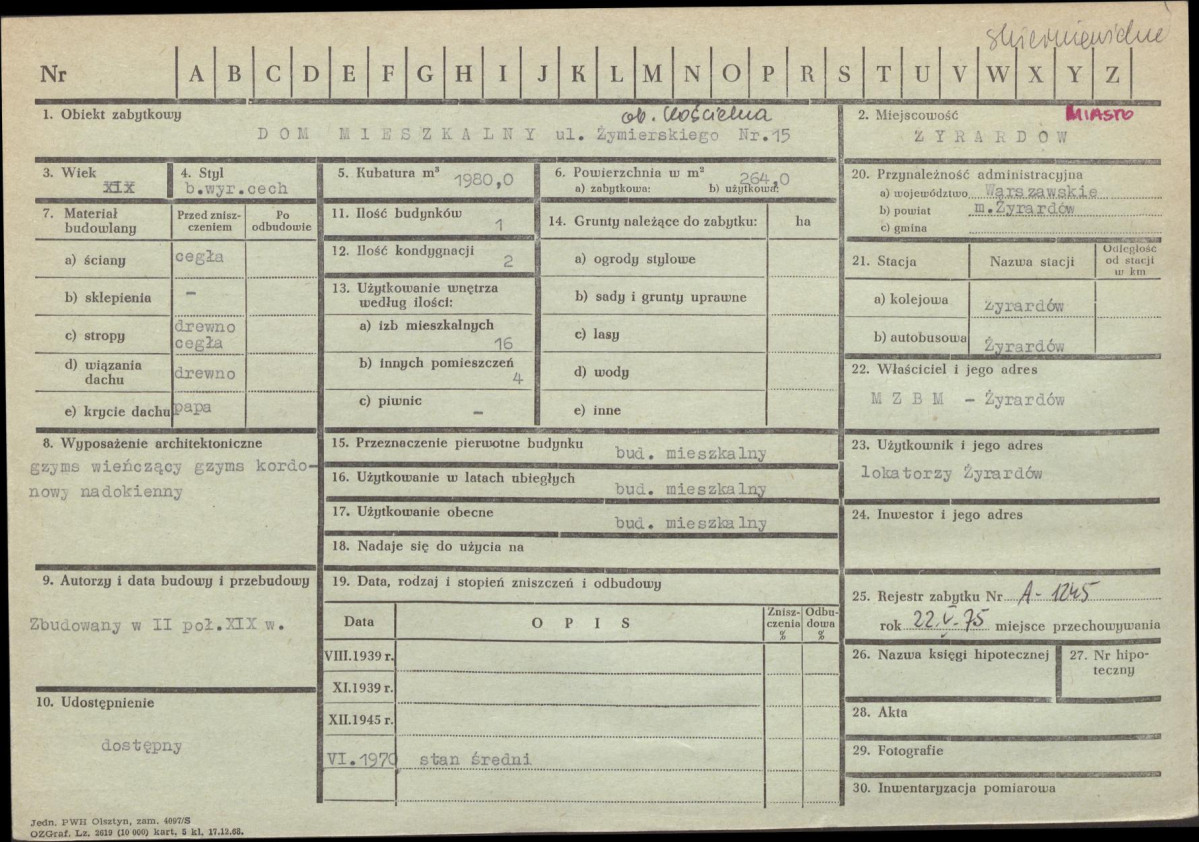 skierniewickie
Nr A B C D E F G H I J K L M N O P R S T U V W X Y Z
1. Obiekt zabytkowy
ob. Kościelna
DOM MIESZKALNY ul. Żymierskiego Nr.15
2. Miejscowość MIASTO
ŻYRARDÓW
3. Wiek
XIX
4. Styl
b.wyr.cech
5. Kubatura m³ 1980,0
6. Powierzchnia w m² 264,0
a) zabytkowa: b) użytkowa:
20. Przynależność administracyjna
a) województwo Warszawskie
b) powiat m.Żyrardów
c) gmina
7. Materiał budowlany
Przed zniszczeniem
Po odbudowie
a) ściany cegła
b) sklepienia –
c) stropy drewno
cegła
d) wiązania dachu drewno
e) krycie dachu papa
11. Ilość budynków 1
12. Ilość kondygnacji 2
13. Użytkowanie wnętrza
według ilości:
a) izb mieszkalnych
16
b) innych pomieszczeń
4
c) piwnic –
14. Grunty należące do zabytku: ha
a) ogrody stylowe
b) sady i grunty uprawne
c) lasy
d) wody
e) inne
21. Stacja Nazwa stacji Odległość od stacji w km
a) kolejowa Żyrardów
b) autobusowa Żyrardów
22. Właściciel i jego adres
M Z B M – Żyrardów
8. Wyposażenie architektoniczne
gzyms wieńczący gzyms kordo-
nowy nadokienny
15. Przeznaczenie pierwotne budynku
bud. mieszkalny
16. Użytkowanie w latach ubiegłych
bud. mieszkalny
17. Użytkowanie obecne
bud. mieszkalny
18. Nadaje się do użycia na
23. Użytkownik i jego adres
lokatorzy Żyrardów
24. Inwestor i jego adres
9. Autorzy i data budowy i przebudowy
Zbudowany w II poł.XIX w.
19. Data, rodzaj i stopień zniszczeń i odbudowy
Data OPIS Zniszczenia % Odbudowa %
VIII.1939 r.
XI.1939 r.
XII.1945 r.
VI.1970 stan średni
25. Rejestr zabytku Nr A-1245
rok 22.V.75 miejsce przechowywania
26. Nazwa księgi hipotecznej
27. Nr hipoteczny
10. Udostępnienie
dostępny
28. Akta
29. Fotografie
30. Inwentaryzacja pomiarowa
Jedn. PWH Olsztyn, zam. 4097/S
OZGraf. Lz. 2619 (10 000) kart. 5 kl. 17.12.68.